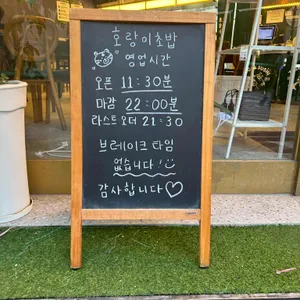 호랑이초밥
영업시간
오픈 11:30분
마감 22:00분
라스트오더 21:30
브레이크 타임
없습니다!
감사합니다♡